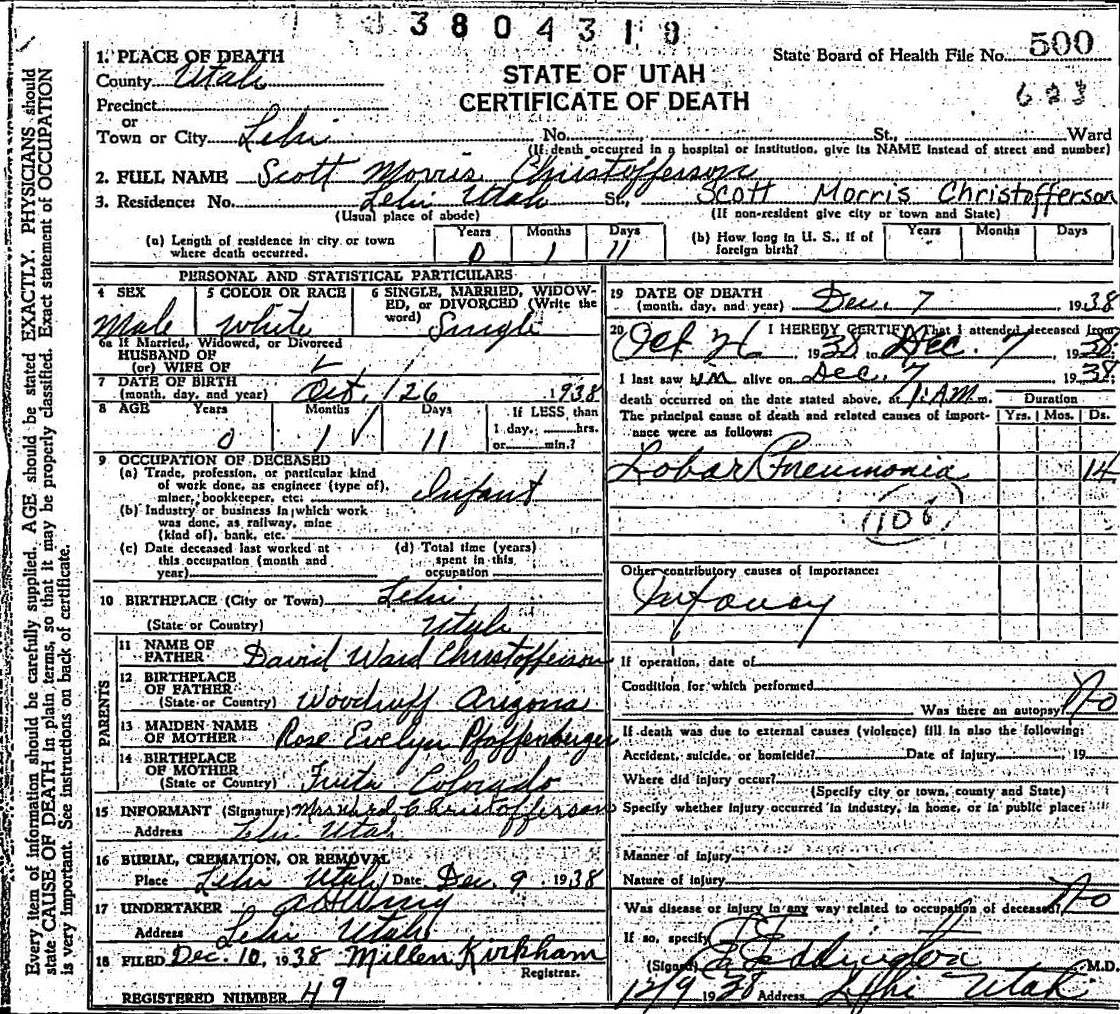 3804319
State Board of Health File No. 500
623
STATE OF UTAH
CERTIFICATE OF DEATH
1. PLACE OF DEATH
County Utah
Precinct
or
Town or City Lehi No. St., Ward
(If death occurred in a hospital or institution, give its NAME instead of street and number)
2. FULL NAME Scott Morris Christofferson
3. Residence: No. Lehi Utah St., Scott Morris Christofferson
(Usual place of abode) (If non-resident give city or town and State)
(a) Length of residence in city or town where death occurred. Years 0 Months 1 Days 11
(b) How long in U. S., if of foreign birth? Years Months Days
PERSONAL AND STATISTICAL PARTICULARS
4 SEX Male
5 COLOR OR RACE White
6 SINGLE, MARRIED, WIDOWED, or DIVORCED (Write the word) Single
6a If Married, Widowed, or Divorced
HUSBAND OF
(or) WIFE OF
7 DATE OF BIRTH
(month, day, and year) Oct. 26 1938
8 AGE Years 0 Months 1 Days 11
If LESS than
1 day, hrs.
or min.?
9 OCCUPATION OF DECEASED
(a) Trade, profession, or particular kind
of work done, as engineer (type of),
miner, bookkeeper, etc. Infant
(b) Industry or business in which work
was done, as railway, mine
(kind of), bank, etc.
(c) Date deceased last worked at
this occupation (month and
year)
(d) Total time (years)
spent in this
occupation
10 BIRTHPLACE (City or Town) Lehi
(State or Country) Utah
PARENTS
11 NAME OF FATHER David Ward Christofferson
12 BIRTHPLACE OF FATHER
(State or Country) Woodruff Arizona
13 MAIDEN NAME OF MOTHER Rose Evelyn Pfaffenberger
14 BIRTHPLACE OF MOTHER
(State or Country) Fruita Colorado
15 INFORMANT (Signature) Mrs Ward Christofferson
Address Lehi Utah
16 BURIAL, CREMATION, OR REMOVAL
Place Lehi Utah Date Dec. 9 1938
17 UNDERTAKER
Address Lehi Utah
18 FILED Dec. 10, 1938 Millen Kirkham
Registrar.
REGISTERED NUMBER 49
19 DATE OF DEATH
(month, day, and year) Dec. 7 1938
20 I HEREBY CERTIFY That I attended deceased from
Oct 26 1938 to Dec. 7 1938
I last saw him alive on Dec. 7 1938
death occurred on the date stated above, at 1 AM m.
The principal cause of death and related causes of importance were as follows:
Duration
Yrs. Mos. Ds.
Lobar Pneumonia 14
Other contributory causes of importance:
Infancy
If operation, date of
Condition for which performed
Was there an autopsy? No
If death was due to external causes (violence) fill in also the following:
Accident, suicide, or homicide? Date of injury , 19
Where did injury occur?
(Specify city or town, county and State)
Specify whether injury occurred in industry, in home, or in public place:
Manner of injury
Nature of injury
Was disease or injury in any way related to occupation of deceased? No
If so, specify
(Signed) Eddington M.D.
12/9 1938 Address Lehi Utah
Every item of information should be carefully supplied. AGE should be stated EXACTLY. PHYSICIANS should
state CAUSE OF DEATH in plain terms, so that it may be properly classified. Exact statement of OCCUPATION
is very important. See instructions on back of certificate.